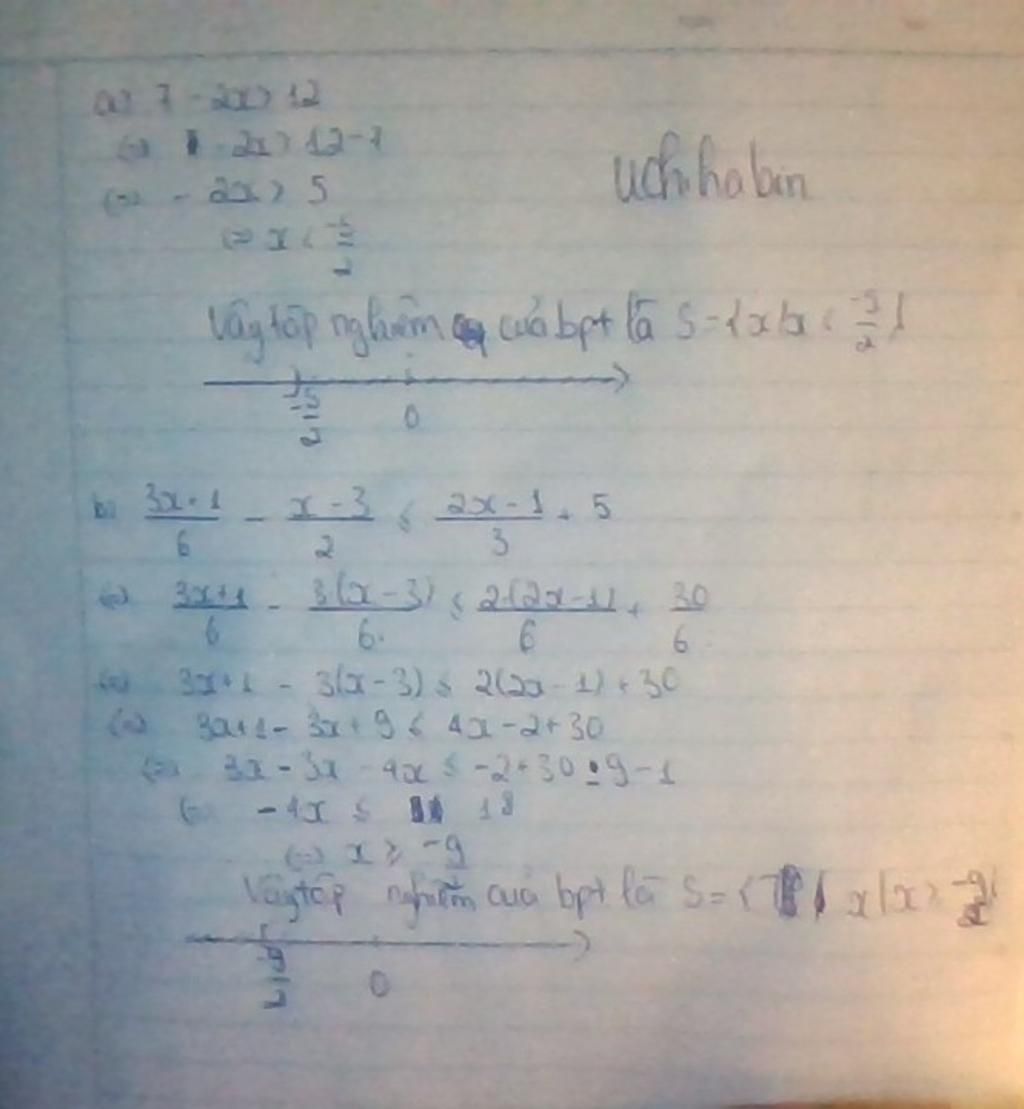 a) 7 - 2x > 12
(=) -2x > 12-7
Uchihabin
(=) - 2x > 5
(=) x < -5/2
Vậy tập nghiệm của bpt là S = {x/x < -5/2}
-5/2 0
b) 3x+1/6 - x-3/2 ≤ 2x-1/3 + 5
(=) 3x+1/6 - 3(x-3)/6 ≤ 2(2x-1)/6 + 30/6
(=) 3x+1 - 3(x-3) ≤ 2(2x-1) + 30
(=) 3x+1 - 3x+9 ≤ 4x-2+30
(=) 3x - 3x - 4x ≤ -2+30-9-1
(=) -4x ≤ 18
(=) x ≥ -9
Vậy tập nghiệm của bpt là S = { x/x ≥ -9/2}
-9/2 0